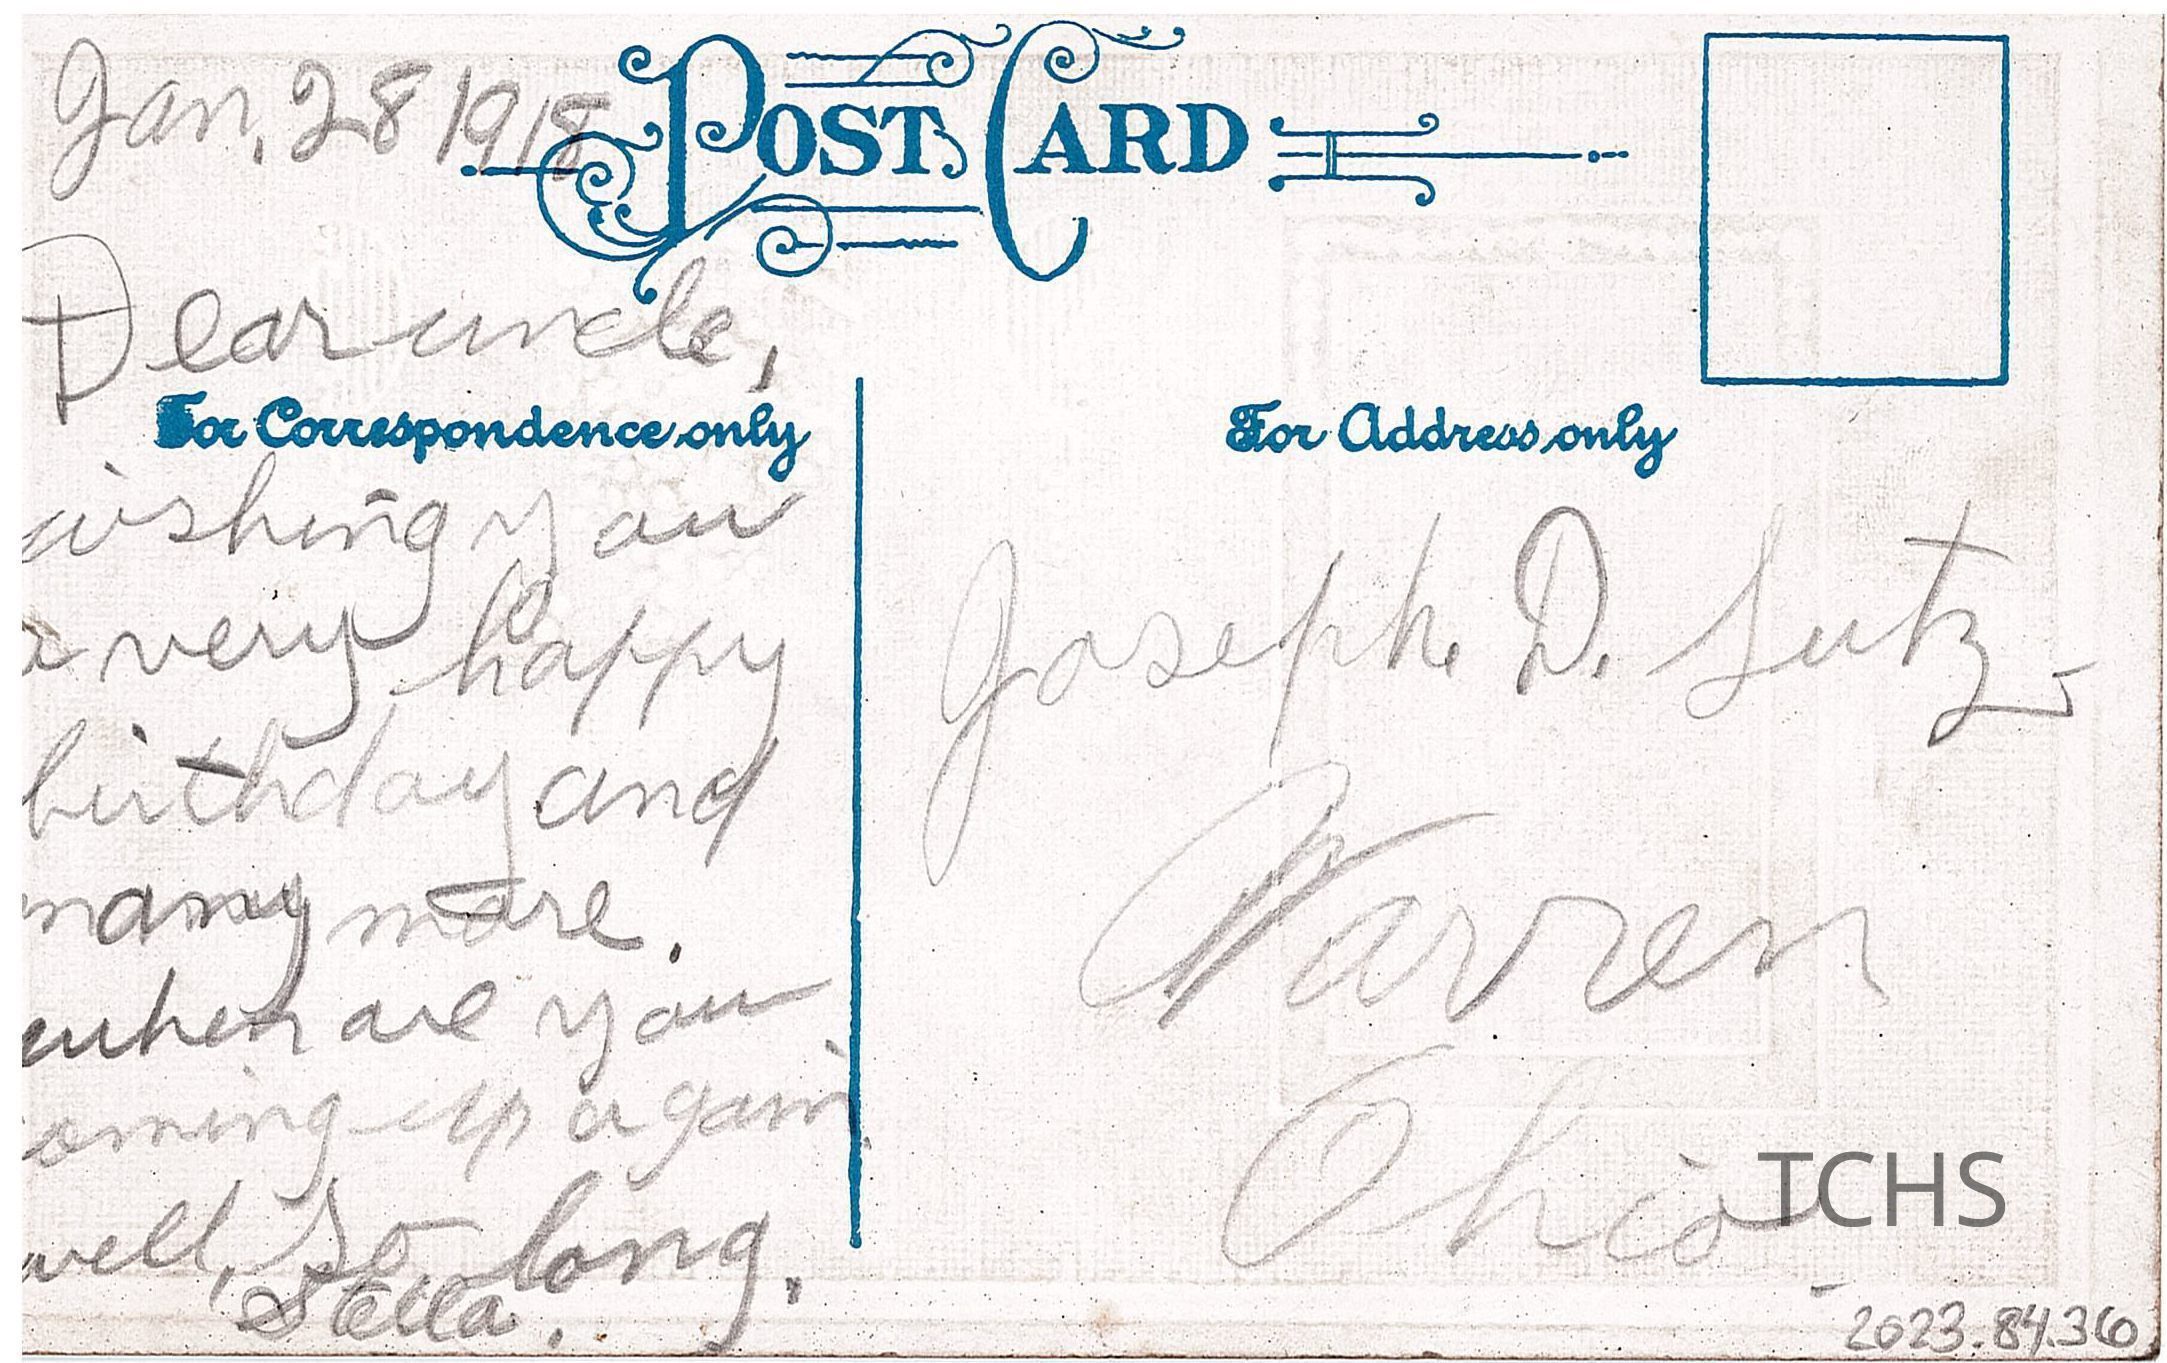 Jan. 28 1918
POST CARD
Dear uncle,
For Correspondence only
wishing you
a very happy
birthday and
many more.
when are you
oming up again
well, so long.
Stella.
For Address only
Joseph. D. Lutz
Warren
Ohio
TCHS
2023.84.36